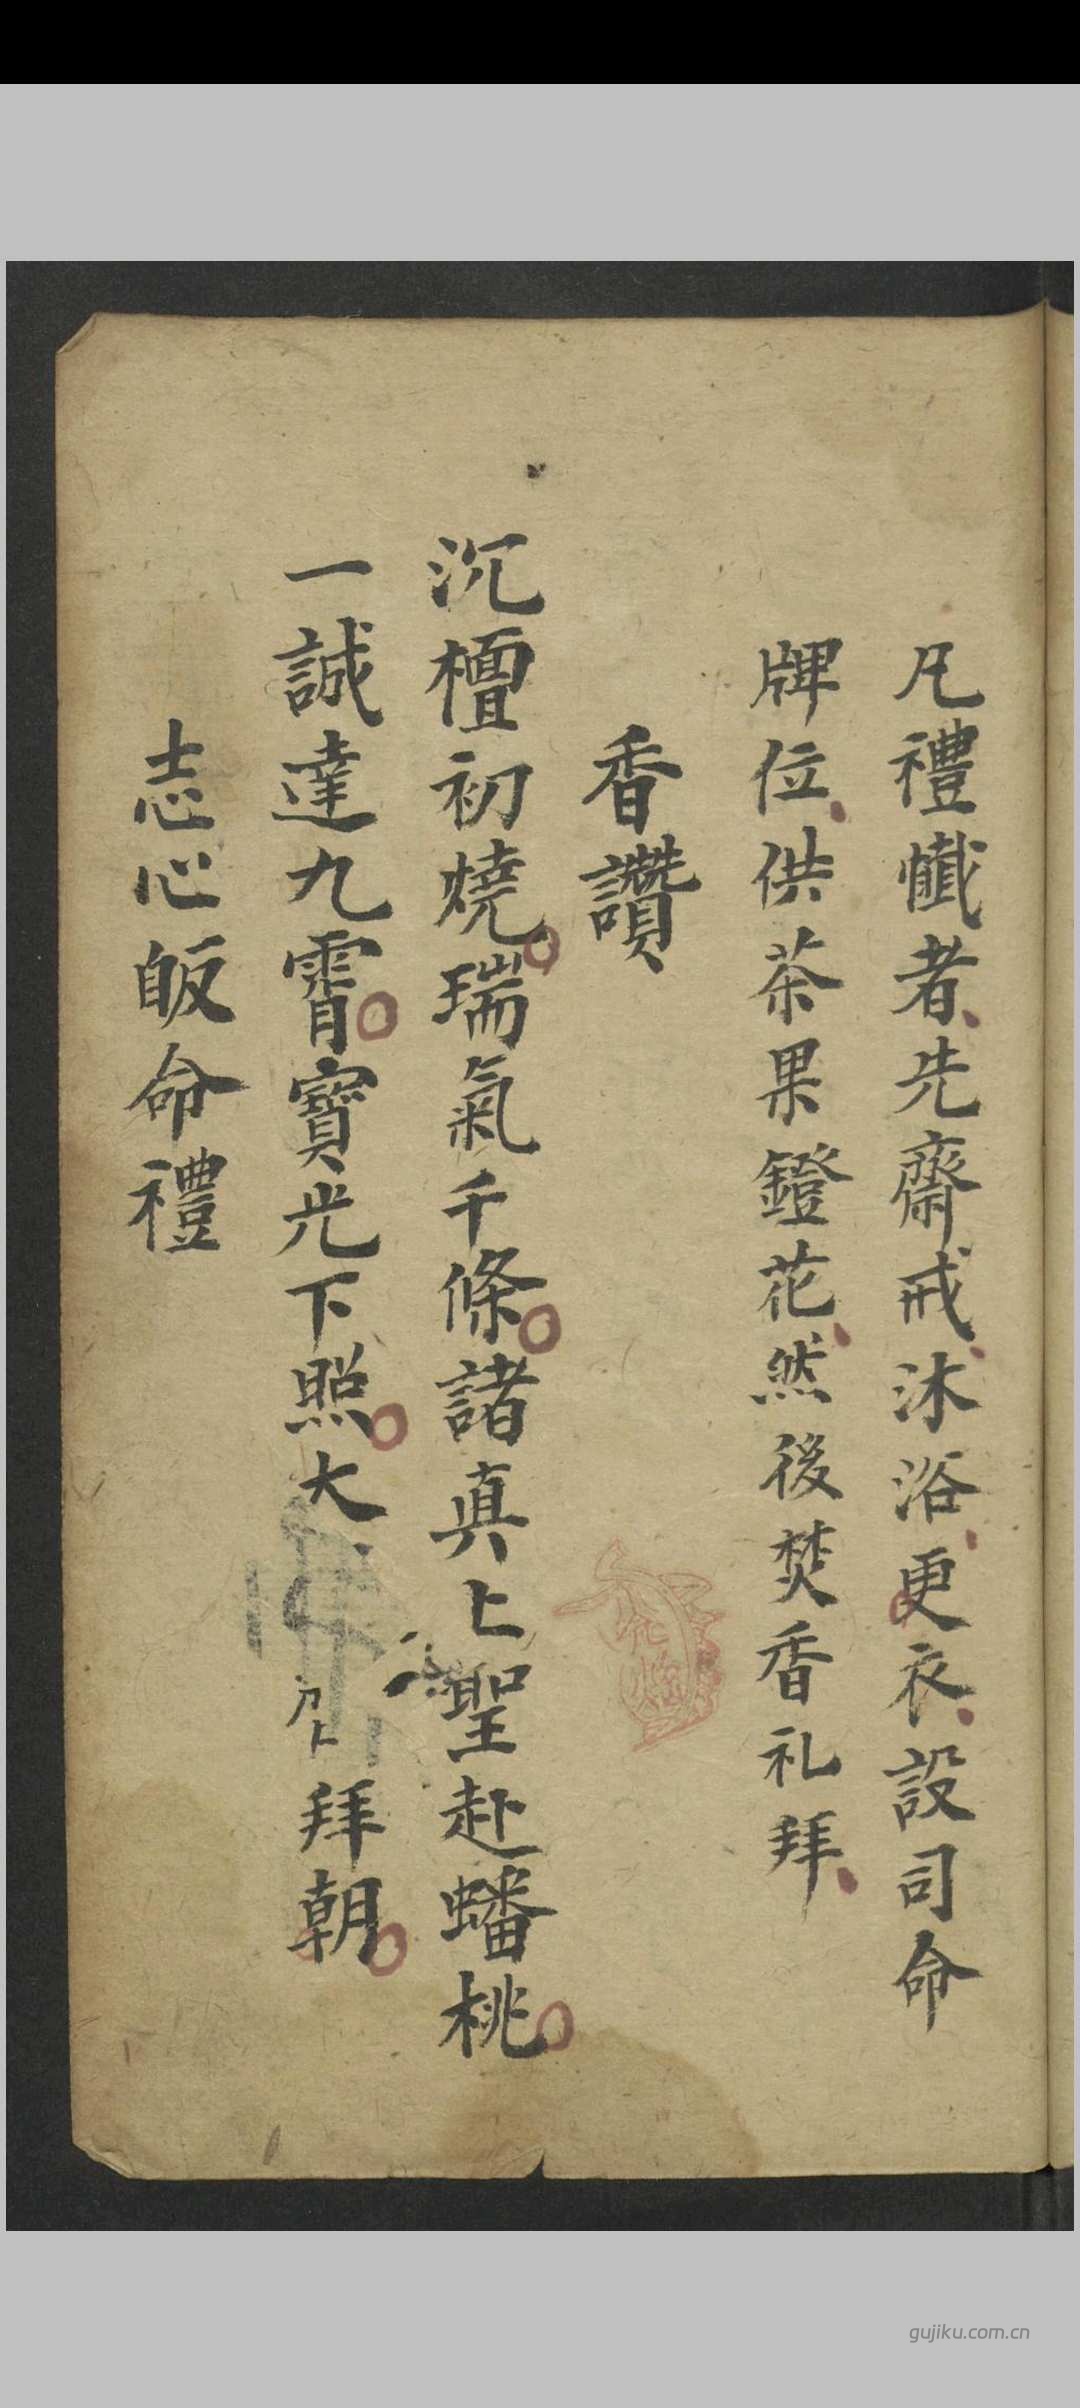 凡禮懺者先齋戒沐浴更衣設司命
牌位供茶果鐙花然後焚香礼拜
香讚
沉檀初燒瑞氣千條諸真上聖赴蟠桃
一誠達九霄寶光下照大拜朝
志心皈命禮
gujiku.com.cn